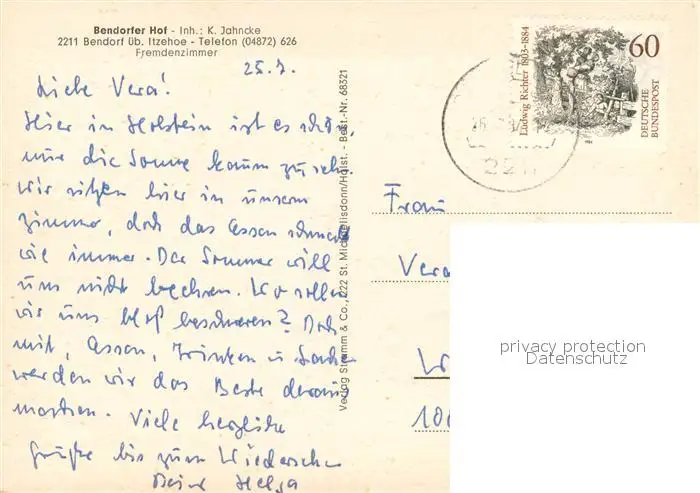 Bendorfer Hof - Inh.: K. Jahncke
2211 Bendorf üb. Itzehoe - Telefon (04872) 626
Fremdenzimmer
25.7.
Liebe Vera!
Hier in Holstein ist es schön,
nur die Sonne kaum zu sehn.
Wir sitzen hier in unserm
Zimmer, doch das Essen schmeckt
wie immer. Der Sommer will
uns nicht beehren. Wo sollen
wir uns bloß beschweren? Doch
mit, Essen, Trinken u
werden wir das Beste daraus
machen. Viele herzliche
Grüße bis zum Wiedersehn
Deine Helga
Verlag Stramm & Co., 222 St. Michaelisdonn/Holst. - Best.-Nr. 68321
Ludwig Richter 1803-1884
60
DEUTSCHE
BUNDESPOST
1984
221
Frau
Vera
W
100
privacy protection
Datenschutz